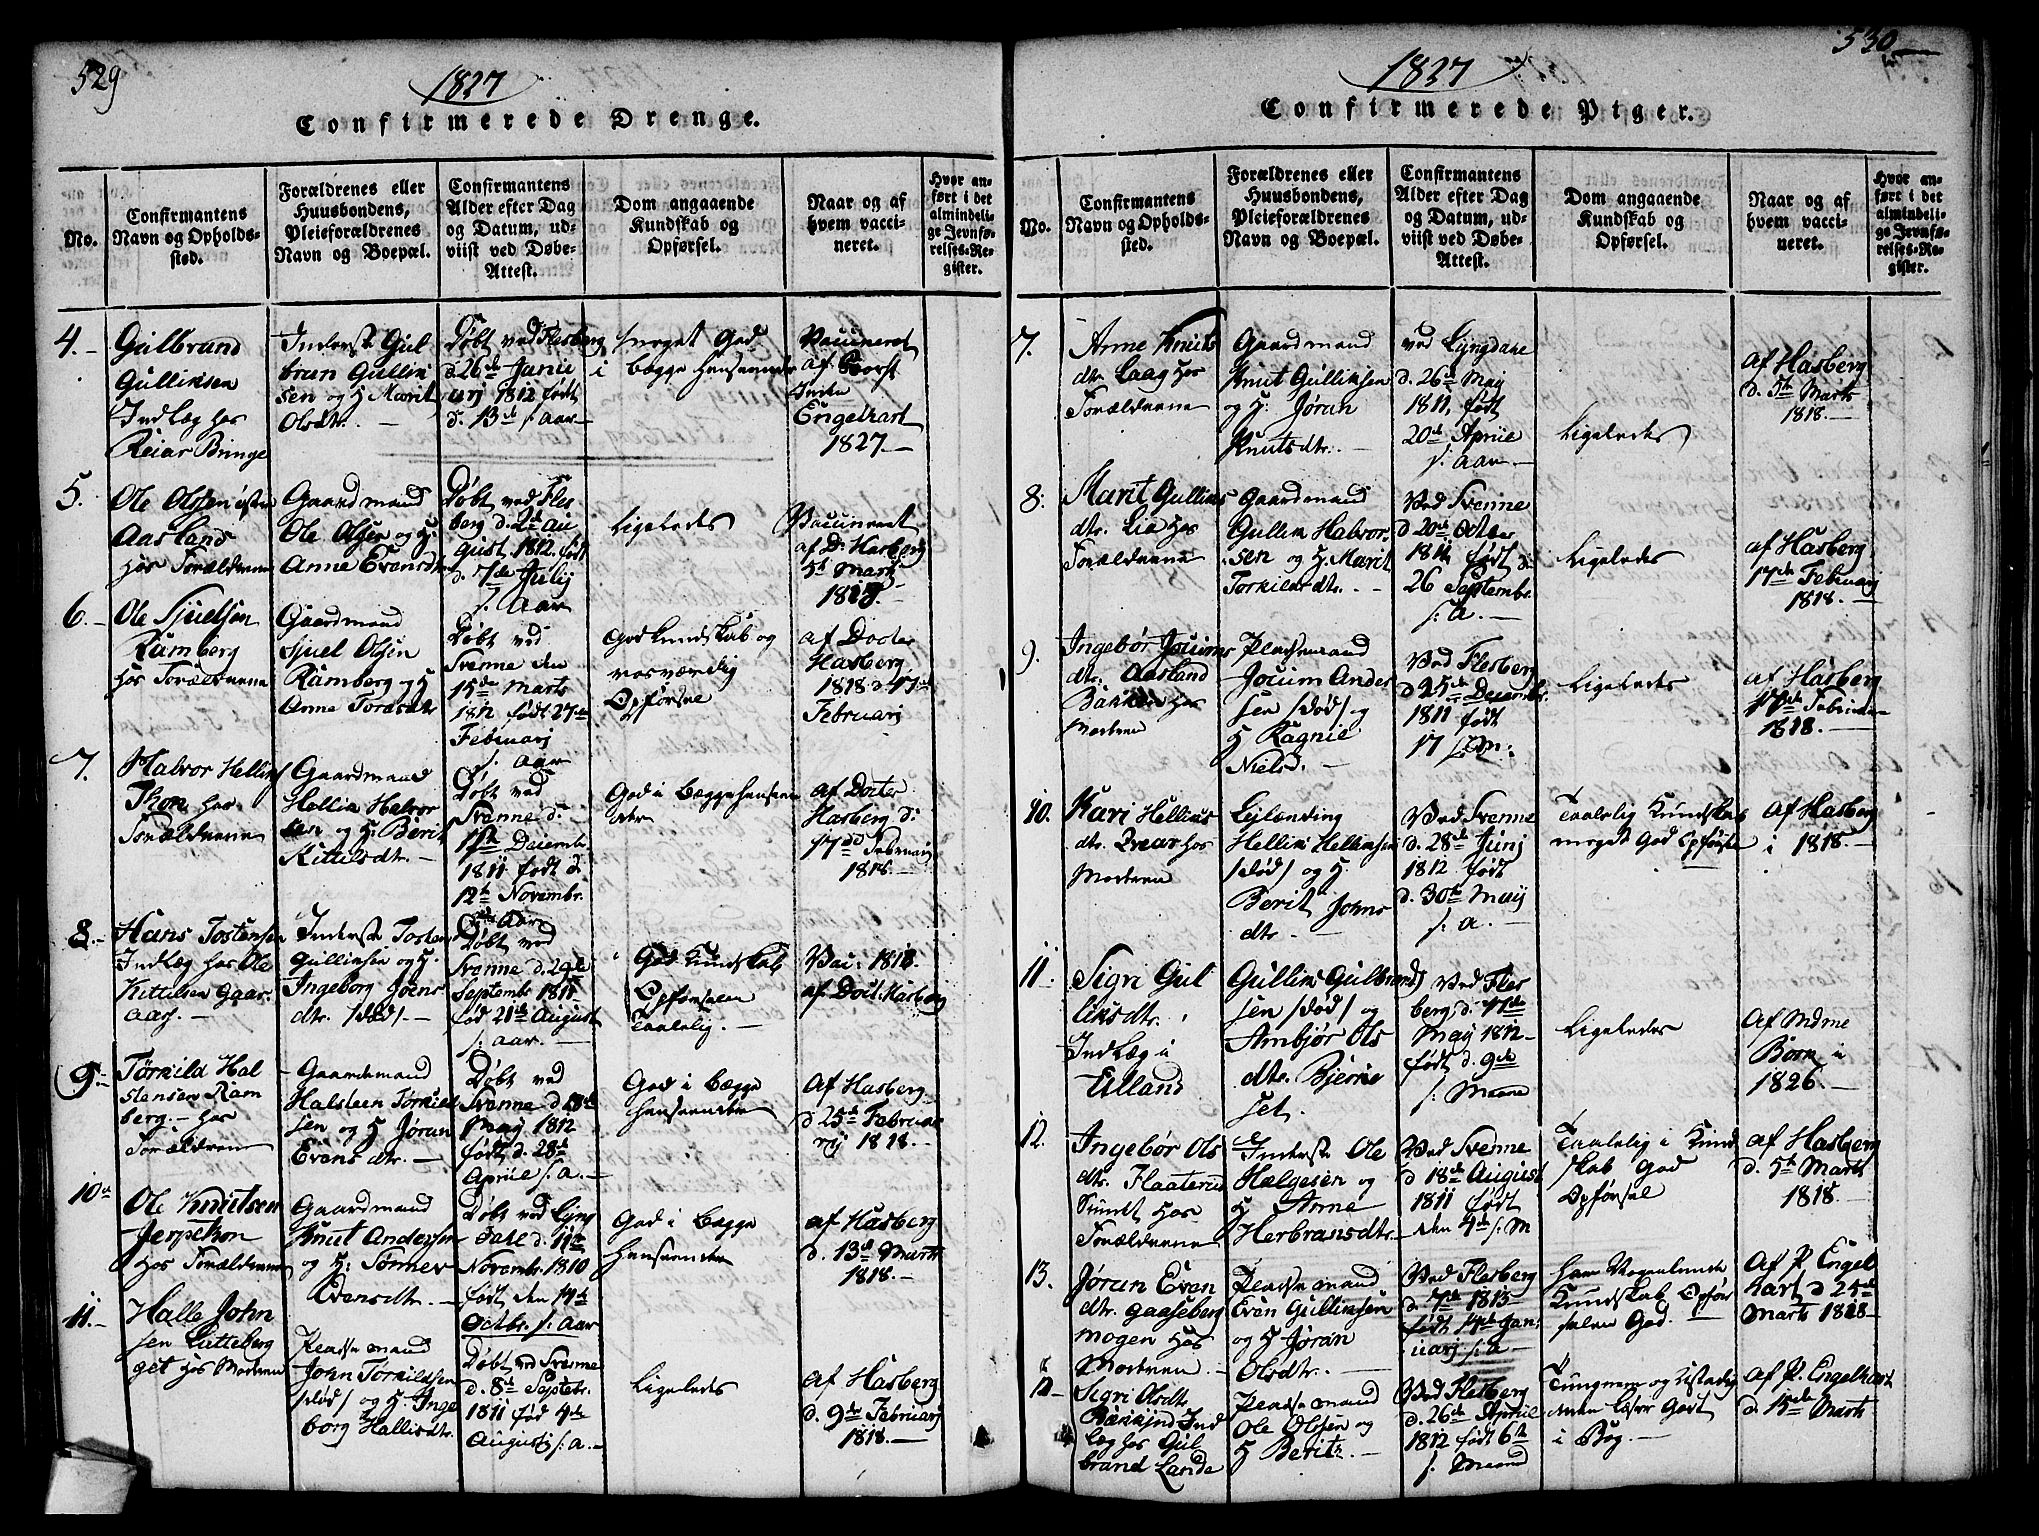 529
1827
Confirmerede Drenge.
No.
Confirmantens
Navn og Opholds-
sted.
Forældrenes eller
Huusbondens,
Pleieforældrenes
Navn og Boepæl.
Confirmantens
Alder efter Dag
og Datum, ud-
viist ved Døbe-
Attest.
Dom angaaende
Kundskab og
Opførsel.
Naar og af
hvem vacci-
neret.
Hvor an-
ført i det
almindeli-
ge Jevnfø-
relses-Re-
gister.
4.-
Gulbrand
Gullixsen
Indlæg hos
Reiar Bringe
Inderste Gul
bran Gullix
sen og H Marit
Olsdtr. -
Døbt ved Flesberg
d. 26de Janu
arj 1812 født
d. 13de s. Aar-
meget God
i begge Henseender
Vaccineret
af
Engelhart
1827.-
5.
Ole Olsen
Aasland
hos Forældrene
Gaardmand
Ole Olsen og H.
Anne Evensdtr
Døbt ved Fles
berg d. 2de Au
gust 1812. født
d. 7de Julij
s. Aar
Ligeledes
Vaccineret
af D. Hasberg
5te Marts
1818.-
6.-
Ole Sjuelsen
Ramberg
hos Forældrene
Gaardmand
Sjuel Olsen
Ramberg og H
Anne Toresdtr
Døbt ved
Svenne den
15de Marts
1812 født 27de
Februarj
s. Aar
God Kundskab og
rosværdig
Opførsel
af Docter
Hasberg
1818 d 17de
Februarj
7.
Halvor Hellixs
Thon hos
Forældrene
Gaardmand
Hellix Halvor
sen og H: Berit
Kittilsdtr. -
Døbt ved
Svenne d.
1ste Decembr.
1811 født d.
12te Novembr.
s. Aar
God i Begge Henseen
der
af Docter
Hasberg d:
17de Februarj
1818.-
8.-
Hans Tostensen
Indlæg hos Ole
Kittelsen Gaar.
aas. -
Inderste Tosten
Gullixsen og H.
Ingeborg Joens
dtr. /død/.-
Døbt ved
Svenne d. 29de
Septembr 1811
fød 21de August
s. Aar. -
God Kundskab
Opførselen
Taalelig. -
Vac: 1818.
af Doct. Hasberg
9.-
Torkild Hal
stensen Ram
berg. - hos
Forældrene
Gaardemand
Halsteen Torkild
sen og H Jøran
Evens dtr. -
Døbt ved
Svenne d 18de
May 1812
født d. 28de
Aprile s. a. -
God i Begge
Henseender
Af Hasberg
d 25de Februa
rij 1818.-
10de
Ole Knutsen
Jerpekon
hos Forældrene
Gaardmand
Knut Andersen
og H: Tonner
Evensdtr. -
Døbt ved Lyng
dahl d. 11te
Novembr. 1810
født den 14de
Octbr. s: Aar
God i Begge
Henseender
af Hasberg
d. 13de Marts
1818.-
11.-
Halle John
sen Lutteberg
get hos Moderen
Pladsemand
John Torkildsen
/død/ og H. Inge
borg Hallisdtr.
Døbt ved Svenne
d. 8de Septbr.
1811 fød 4de
Augustj s. a. -
Ligeledes
Af Hasberg
d. 9de Februarj
1818.-
530
1827
Confirmerede Piger.
No.
Confirmantens
Navn og Opholds-
sted.
Forældrenes eller
Huusbondens,
Pleieforældrenes
Navn og Boepæl.
Confirmantens
Alder efter Dag
og Datum, ud-
viist ved Døbe-
Attest.
Dom angaaende
Kundskab og
Opførsel.
Naar og af
hvem vacci-
neret.
Hvor an-
ført i det
almindeli-
ge Jevnfø-
relses-Re-
gister.
7.
Anne Knuts
dtr. Laag hos
Forældrene
Gaardmand
Knut Gullixsen
og H: Jøran
Knutsdtr. -
ved Lyngdale
d. 26de May
1811, født
20de Aprile
s. Aar. -
Ligeledes
Af Hasberg
d. 5te Marts
1818.-
8:
Marit Gullixs
dtr. Lia hos
Forældrene
Gaardmand
Gullix Halvor.
sen og H. Marit
Torkildsdtr. -
Ved Svenne
d. 20de Octber
1811 født d:
26 Septembr.
s. a. -
Ligeledes
Af Hasberg
17de Februarj
1818.-
9.
Ingebør Jocums
dtr. Aasland
Bakken hos
Moderen
Pladsemand
Jocum Ander
sen /død/ og
H Ragnil
Nielsd. -
Ved Flesberg
d 25de Decembr.
1811 født
17 s. M:
Ligeledes
af Hasberg
17de Februar
1818.-
10.
Kari Hellixs
dtr. hos
Moderen
Lejlænding
Hellix Hellixsen
/død/ og H.
Berit Johns
dtr. -
Ved Svenne
d. 28de Junj
1812 født
d. 30te May
s. a. -
Taalelig Kundskab
meget God Opførsel
af Hasberg
i 1818.-
11
Sigri Gul
lixsdtr.
Indlæg i
Eiland
Gullix Gulbrand
sen /død/ og
Ambjør Ols
dtr. Bjerke
set.
Ved Fles
berg. d. 17de
May 1812-
født d. 9de
s. Maane
Ligeledes
Af Mdme
Bork i
1826.-
12.
Ingebør Ols
dtr. Flaaterud
Sundet hos
Forældrene
Inderste Ole
Helgesen og
H Anne
Herbransdtr.
Ved Svenne
d 18de August
1811 født
den 4de s. M
Taalelig i Kund
skab God
Opførsel
Af Hasberg
d. 5te Marts
1818.-
13.
Jøran Even
dtr. Gaaseberg
mogen hos
Moderen -
Pladsemand
Even Gullixsen
og H Jøran
Olsdtr. -
Ved Flesberg
d. 7de 1813
født 14de Jan:
uarj s. a
Kundskab Opfør
selen God. -
Af P. Engel
hart d 25de
Marts 1818-
12-
Sigri Olsdtr
Ind
læg hos Gul
brand Lande
Pladsemand
Ole Olsen og
H Berit
Ved Flesberg
d. 26de Aprile
1812 født 6te
s. Maaned
Tungnem og Ustadig
men læser Godt
i Bog. -
af P. Engelhart
d. 15de Marts